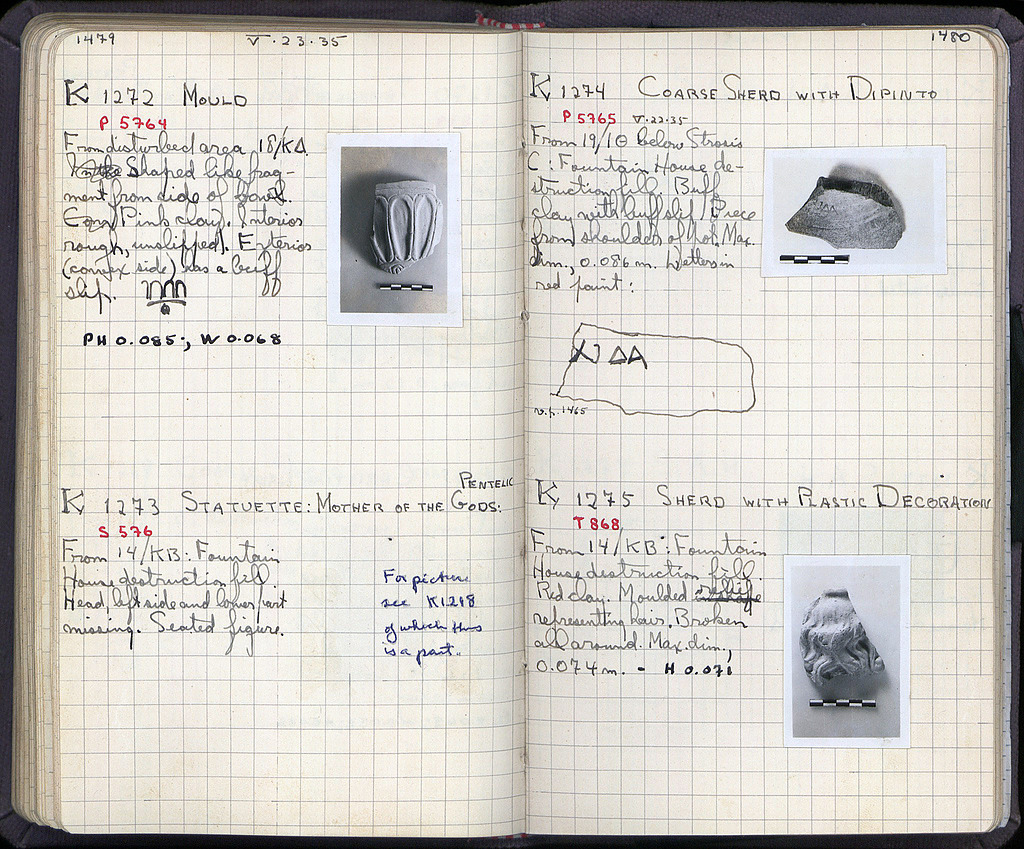 1479
V·23·35
K 1272 MOULD
P 5764
From disturbed area 18/ΚΔ.
Shaped like frag-
ment from side of bowl.
Pink clay. Interior
rough, unslipped. Exterior
(convex side) has a buff
slip.
PH 0.085; W 0.068
PENTELIC
K 1273 STATUETTE: MOTHER OF THE GODS:
S 576
From 14/ΚΒ: Fountain
House destruction fill.
Head, left side and lower part
missing. Seated figure.
For picture
see K1218
of which this
is a part.
1480
K 1274 COARSE SHERD WITH DIPINTO
P 5765 V·22·35
From 19/ΙΘ below Strosis
C: Fountain House de-
struction fill. Buff
clay with buff slip. Piece
from shoulder of pot. Max.
dim., 0.086 m. Letters in
red paint:
ΔΑ
v.p. 1465
K 1275 SHERD WITH PLASTIC DECORATION
T 868
From 14/ΚΒ: Fountain
House destruction fill.
Red clay. Moulded relief
representing hair. Broken
all around. Max. dim.,
0.074 m. - H 0.071